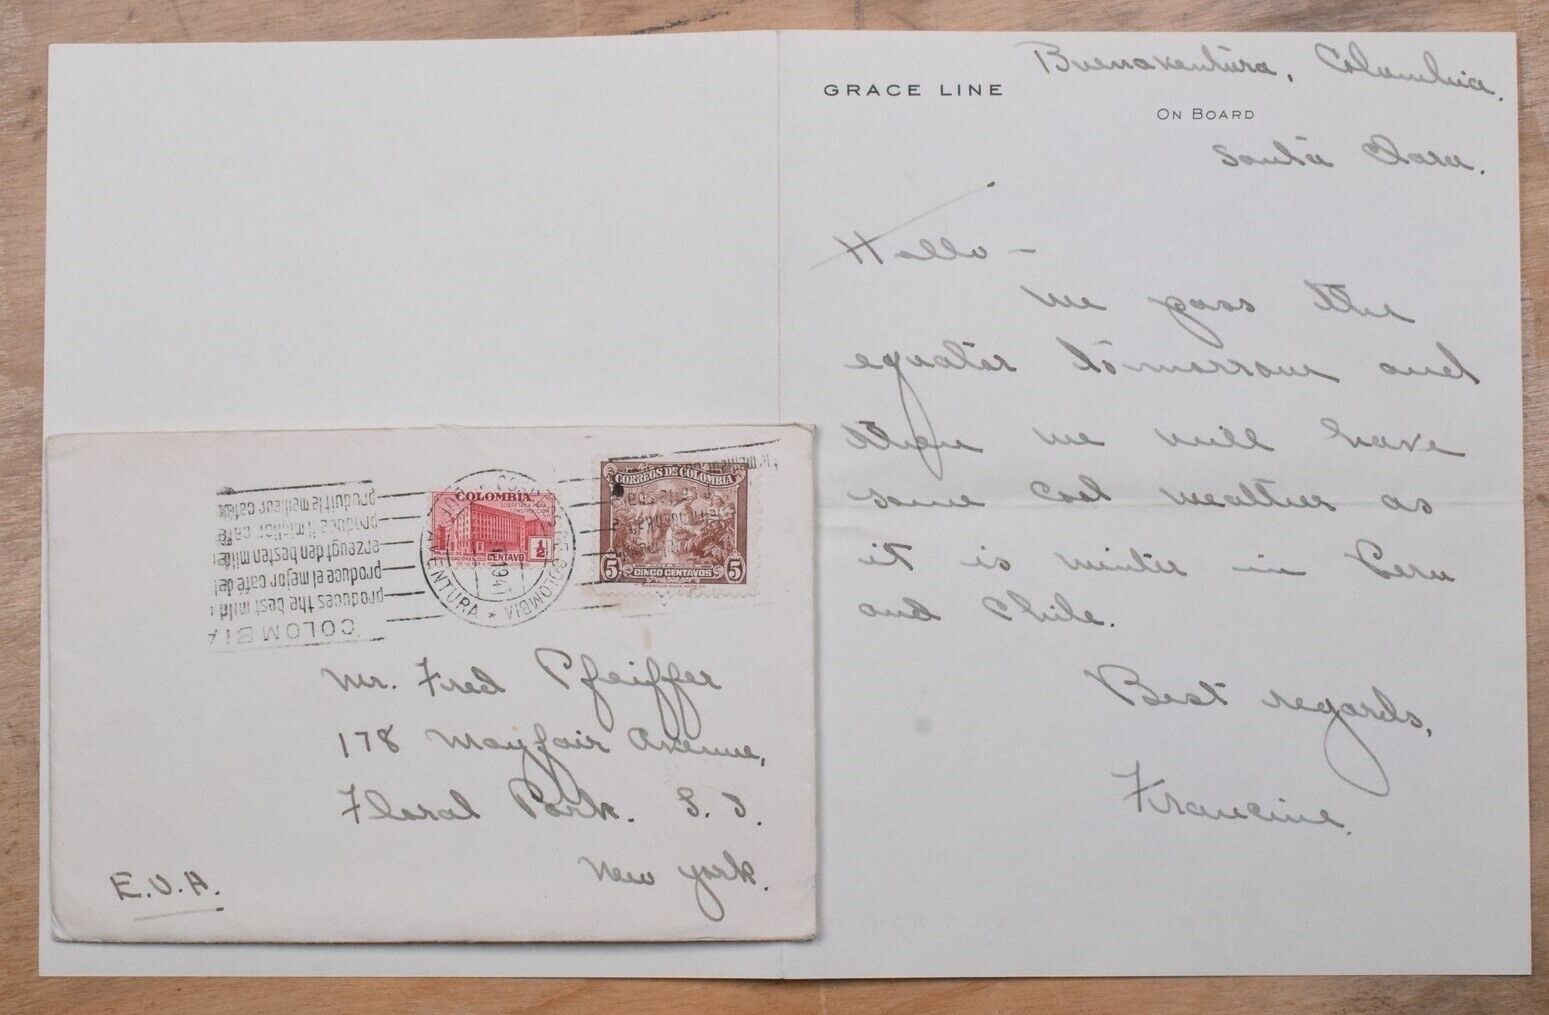 GRACE LINE
Buenaventura, Colombia.
ON BOARD
Santa Clara.
Hello —
We pass the
equator tomorrow and
then we will have
some cool weather as
it is winter in Peru
and Chile.
Best regards,
Francine.
COLOMBIA
produces the best mild
produce el mejor café
erzeugt den besten milden
produit le meilleur café
BUENAVENTURA * COLOMBIA
194
COLOMBIA
SOBRETASA PARA
CONSTRUCCION
CENTAVO 1/2
CORREOS DE COLOMBIA
5 CINCO CENTAVOS 5
AMERICAN BANK NOTE CO.
Mr. Fred Pfeiffer
178 Mayfair Avenue,
Floral Park. L. I.
New York.
E.U.A.